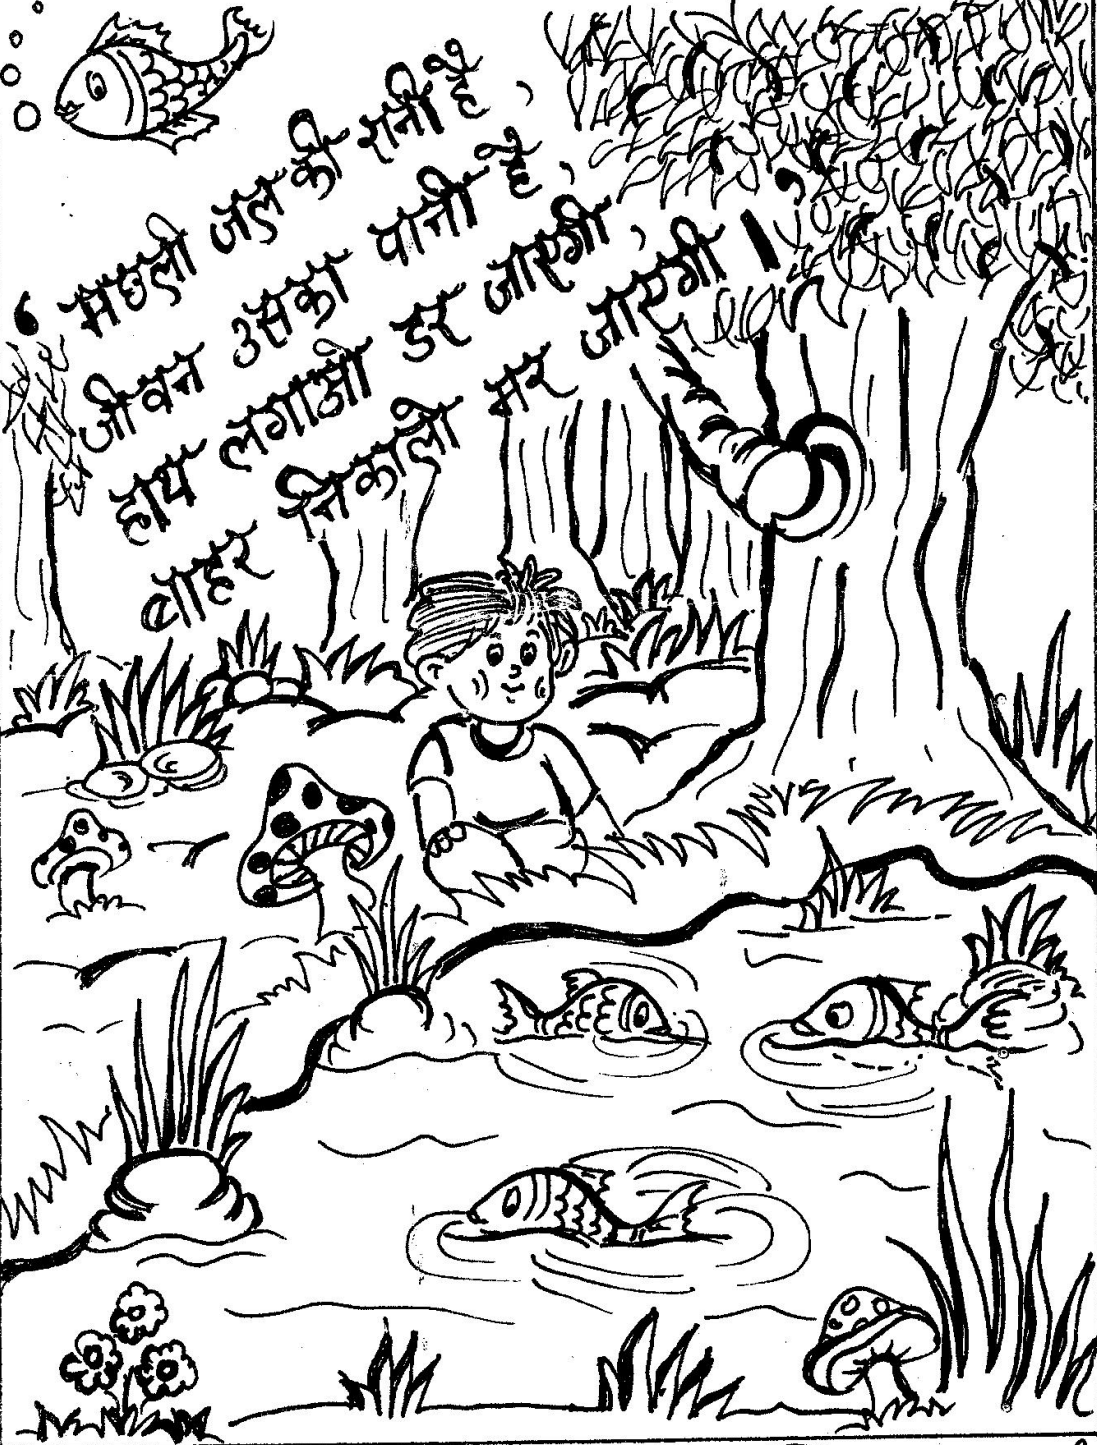 ‘मछली जल की रानी है,
जीवन उसका पानी है,
हाथ लगाओ डर जाएगी,
बाहर निकालो मर जाएगी।’